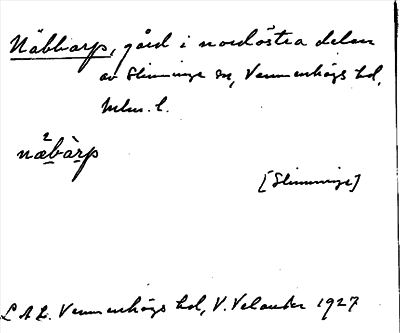 Näbbarp, gård i nordöstra delen
av Slimminge sn, Vemmenhögs hd,
Mlm. l.
nä²bàrp
[Slimminge]
L A L. Vemmenhögs hd, V. Velander 1927